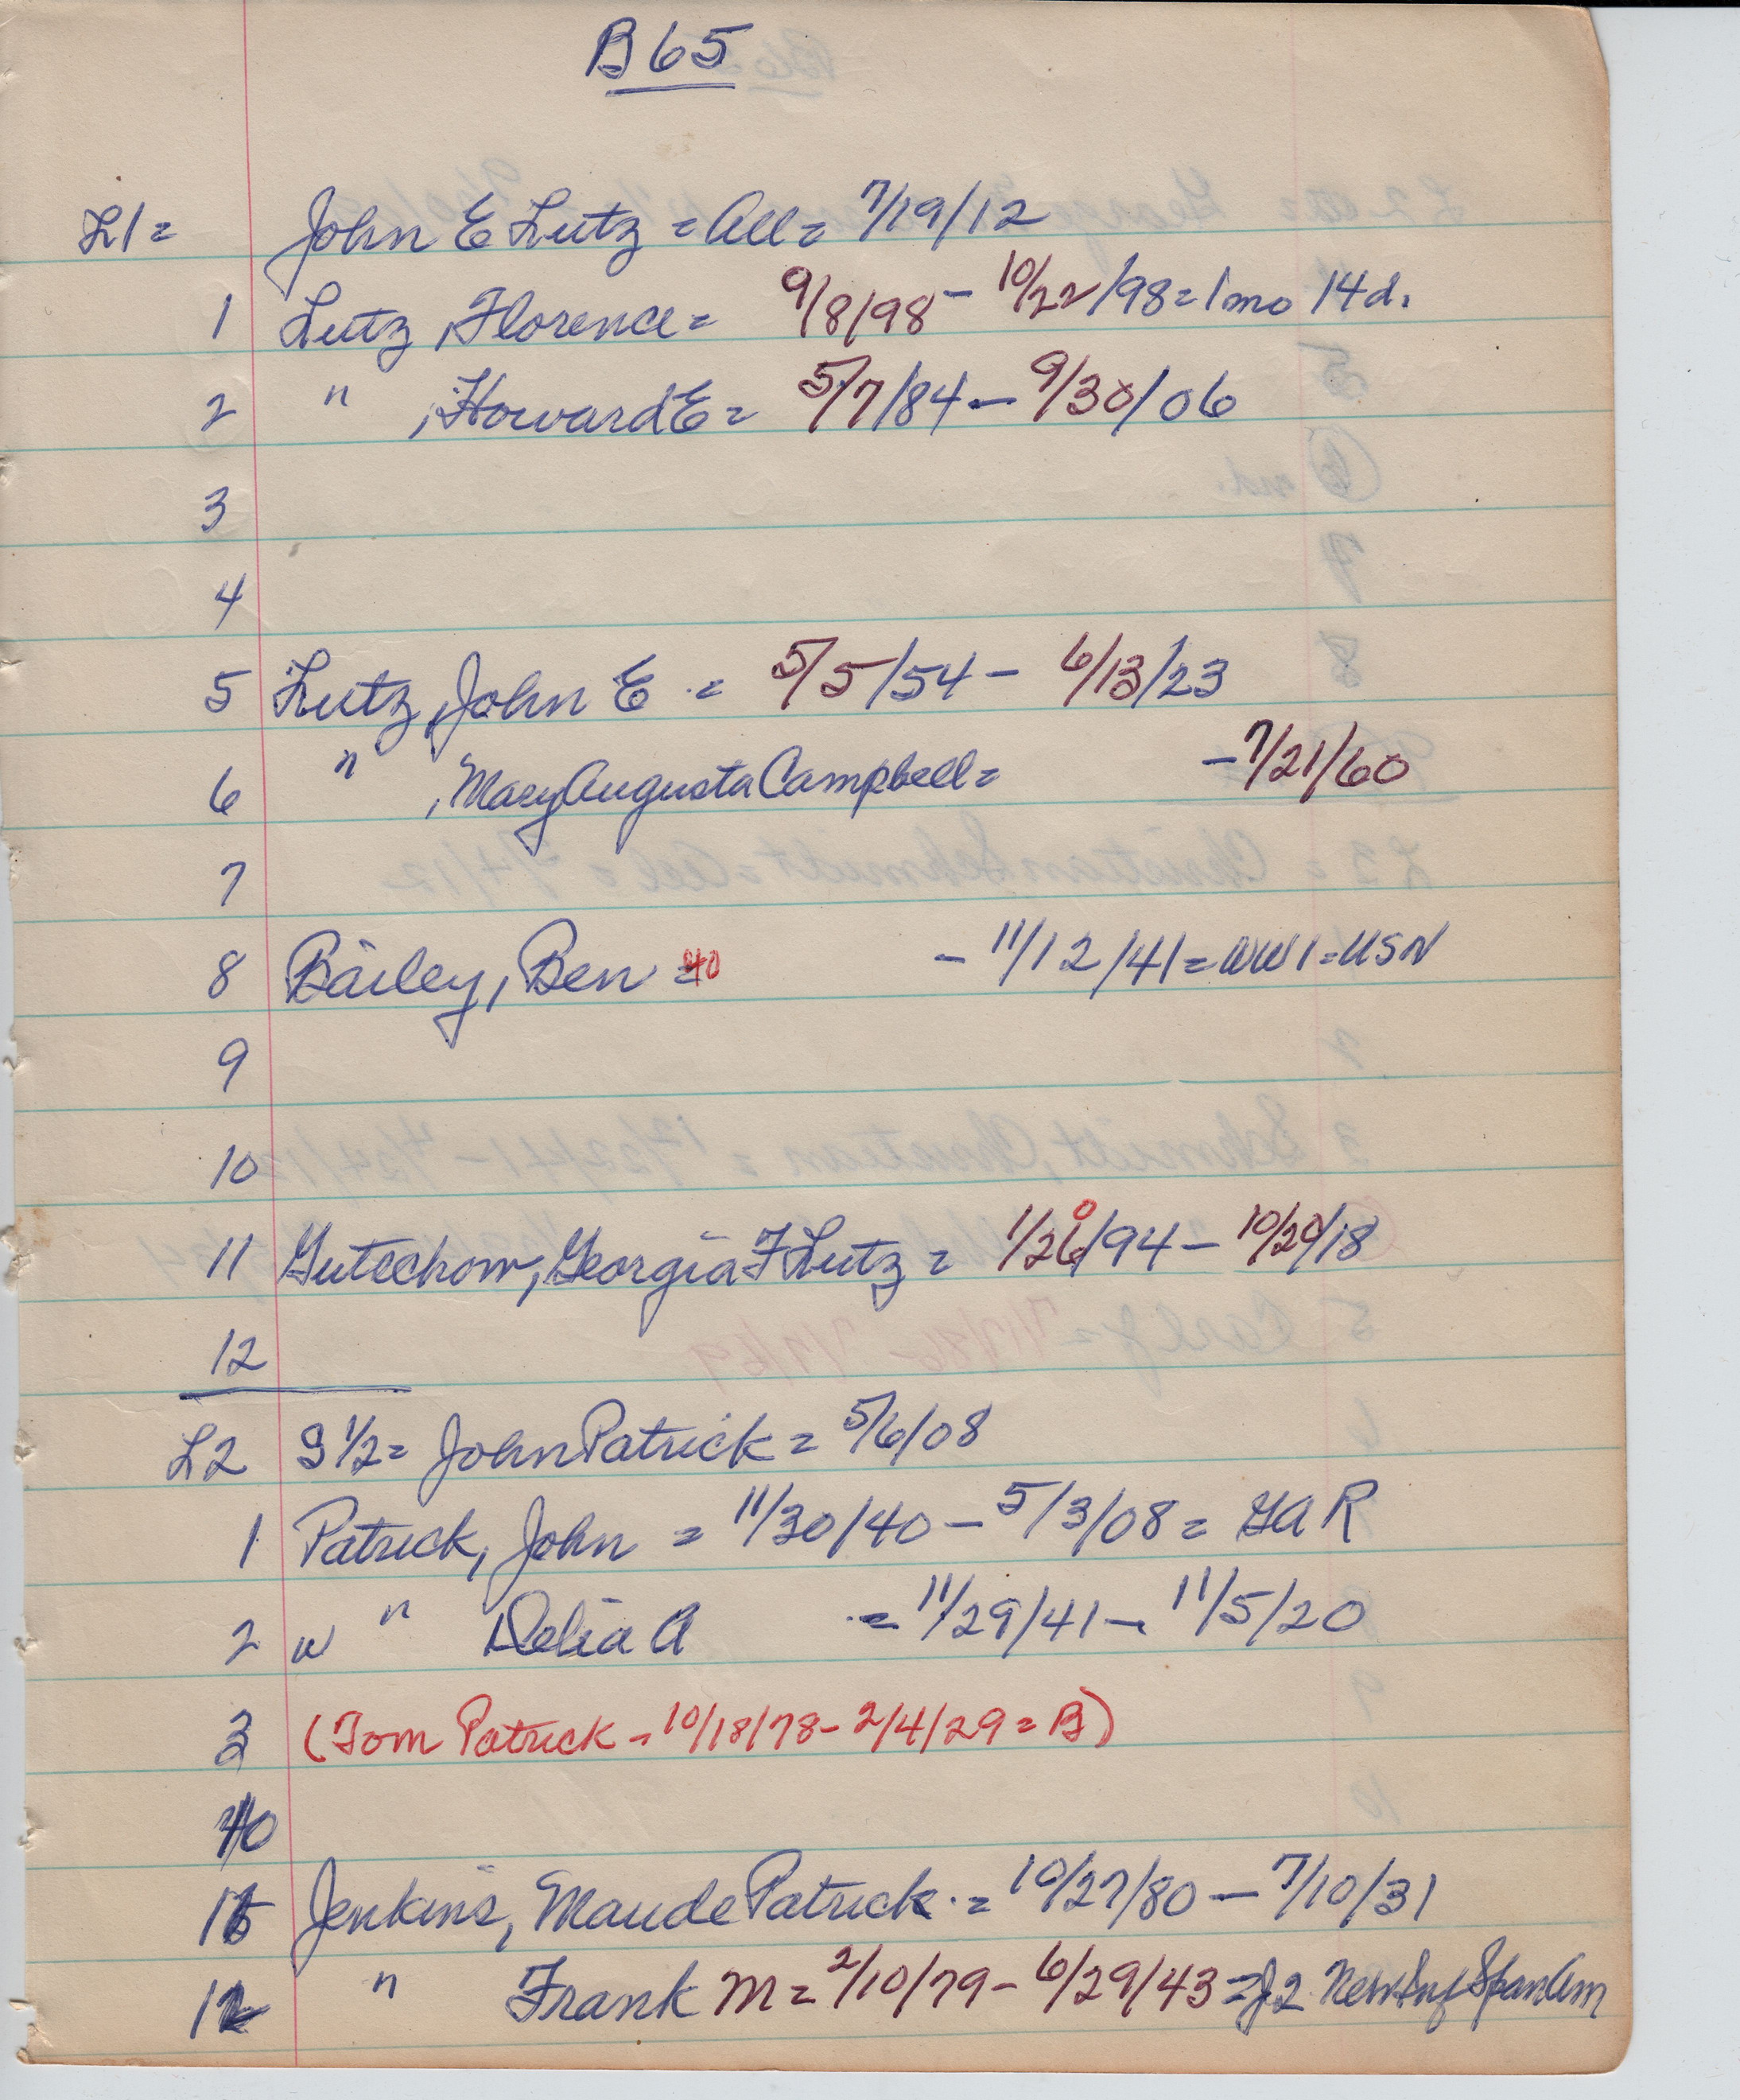 B65
L1= John E Lutz = All = 7/19/12
1 Lutz, Florence = 9/8/98 - 10/22/98 = 1 mo 14d.
2 " , Howard E = 5/7/84 - 9/30/06
3
4
5 Lutz, John E = 5/5/54 - 6/13/23
6 " , Mary Augusta Campbell = - 7/21/60
7
8 Bailey, Ben = 40 - 11/12/41 = WW1 = USN
9
10
11 Gutschow, Georgia F Lutz = 1/26/94 - 10/29/18
12
L2 S 1/2 = John Patrick = 5/6/08
1 Patrick, John = 11/30/40 - 5/3/08 = GAR
2 w " Delia A = 11/29/41 - 11/5/20
3 (Tom Patrick - 10/18/78 - 2/4/29 = B)
10
11 Jenkins, Maude Patrick = 10/27/80 - 7/10/31
12 " Frank M = 2/10/79 - 6/29/43 = J 2 Nebr Inf Span Am